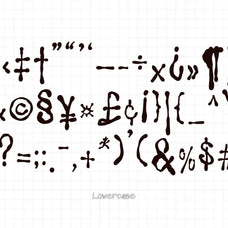 ‹‡†”“’‘—–÷x¿»¶
«©§¥¤£¢¡}|{_^
?=;:.-,+*)'(&%$#
Lowercase